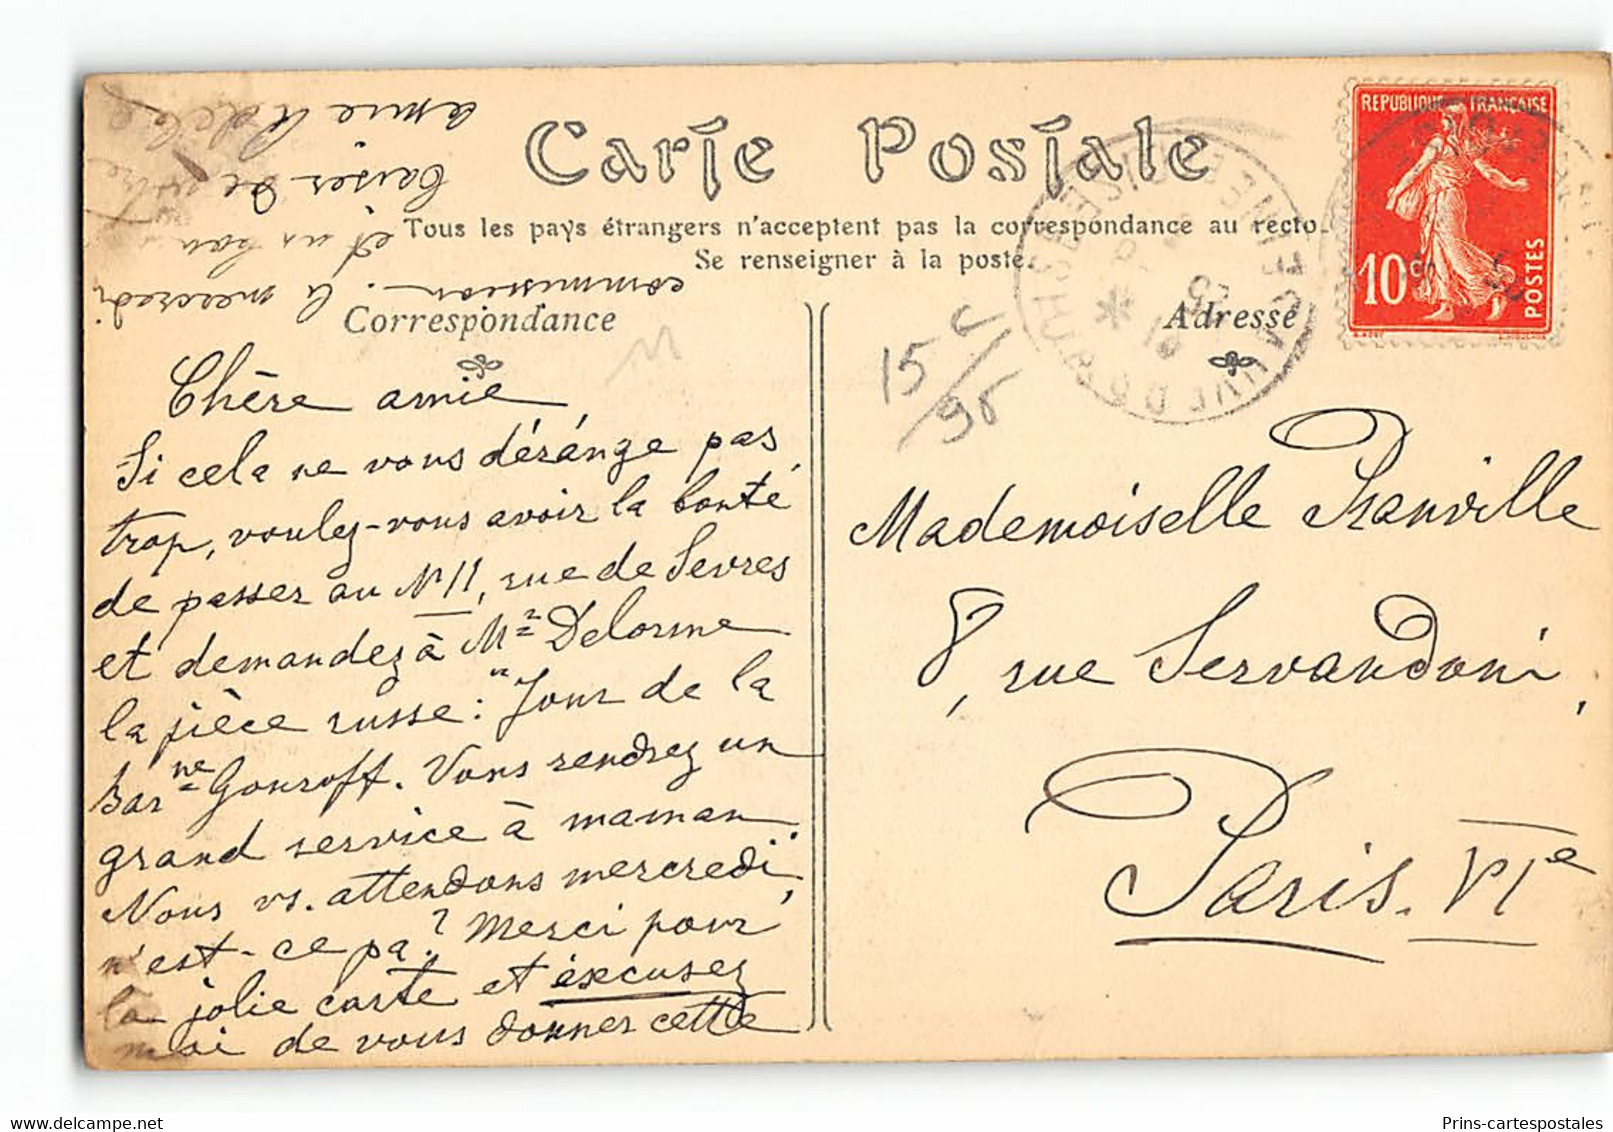 Carte Postale
Tous les pays étrangers n'acceptent pas la correspondance au recto.
Se renseigner à la poste.
Correspondance
Adresse
REPUBLIQUE FRANÇAISE
10c
POSTES
15 c/95
11
Chère amie,
Si cela ne vous dérange pas
trop, voulez-vous avoir la bonté
de passer au N° 11, rue de Sevres
et demandez à Mr Delorme
la pièce russe: "Jour de la
Barne Gouroff. Vous rendrez un
grand service à maman.
Nous vs. attendons mercredi,
n'est-ce pa? Merci pour
la jolie carte et éxcusez
moi de vous donner cette
commission. à mercredi
et un bon
baiser de votre
amie Adele
Mademoiselle Pranville
8, rue Servandoni,
Paris. VIe
Prins-cartespostales